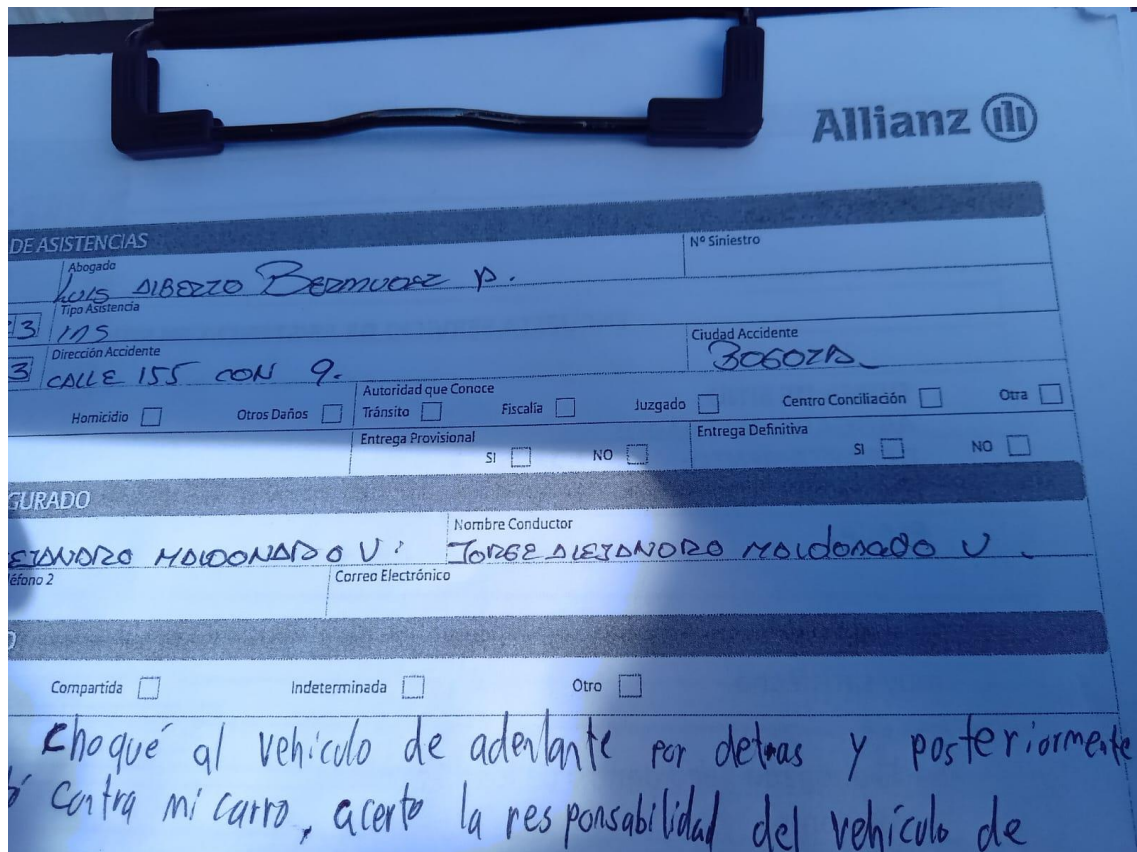 Allianz
DE ASISTENCIAS
Abogado
Nº Siniestro
LUIS ALBERTO BERMUDEZ P.
Tipo Asistencia
3
Dirección Accidente
Ciudad Accidente
3 CALLE 155 CON 9.
BOGOTA
Homicidio Otros Daños
Autoridad que Conoce
Tránsito Fiscalía Juzgado Centro Conciliación Otra
Entrega Provisional
SI NO
Entrega Definitiva
SI NO
GURADO
Nombre Conductor
EJANDRO MALDONADO U. JORGE ALEJANDRO MALDONADO U.
éfono 2
Correo Electrónico
Compartida Indeterminada Otro
Choqué al vehiculo de adenlante por detras y posteriormente
ó contra mi carro, acerto la responsabilidad del vehículo de